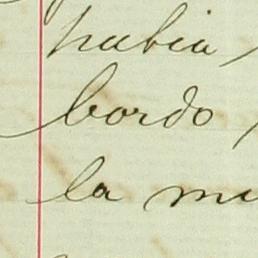 habia
bordo
la